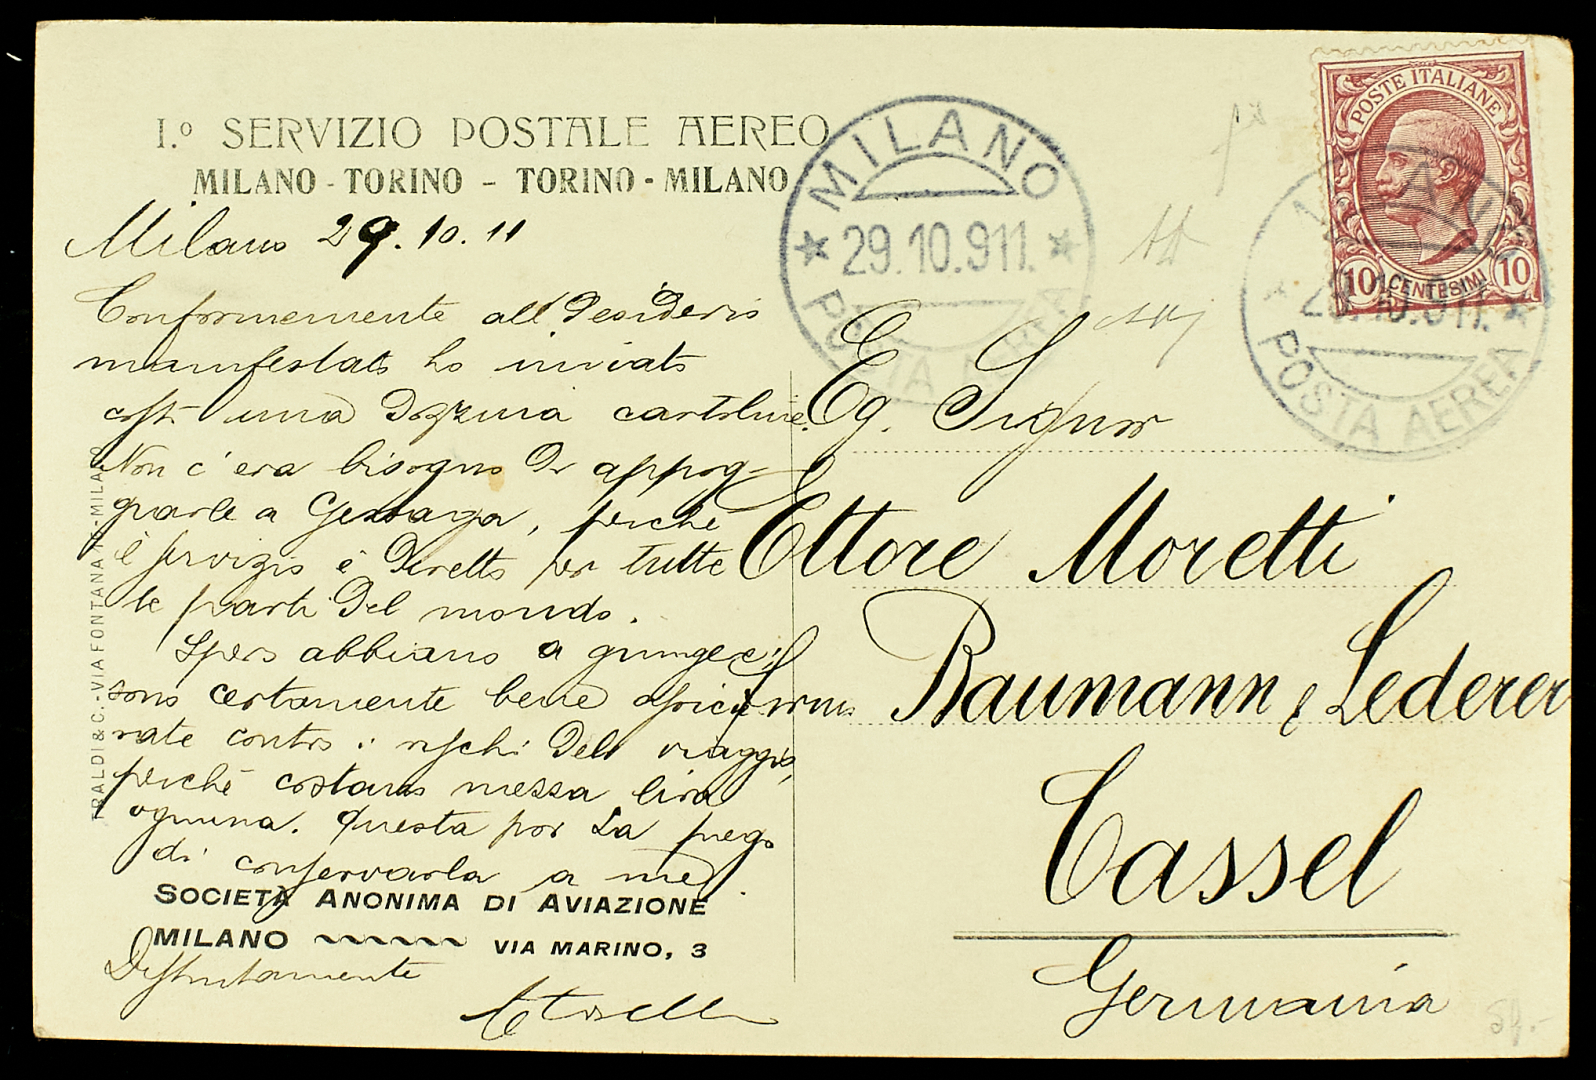 I.º SERVIZIO POSTALE AEREO
MILANO - TORINO - TORINO - MILANO
Milano 29.10.11
Conformemente all desiderio
manifestato ho inviato
costì una dozzina cartoline.
Non c'era bisogno di appog-
giarle a perchè
il servizio è diretto per tutte
le parti del mondo.
Spero abbiano a giungere;
sono certamente bene assicu-
rate contro i rischi del viaggio,
perchè costano mezza lira
ognuna. Questa poi La prego
di conservarla a me.
SOCIETÀ ANONIMA DI AVIAZIONE
MILANO VIA MARINO, 3
Distintamente
TRALDI & C. - VIA FONTANA - MILANO
MILANO
29.10.911.
POSTA AEREA
POSTE ITALIANE
10 CENTESIMI 10
MILANO
29.10.911.
POSTA AEREA
Eg. Signor
Ettore Moretti
Baumann & Lederer
Cassel
Germania